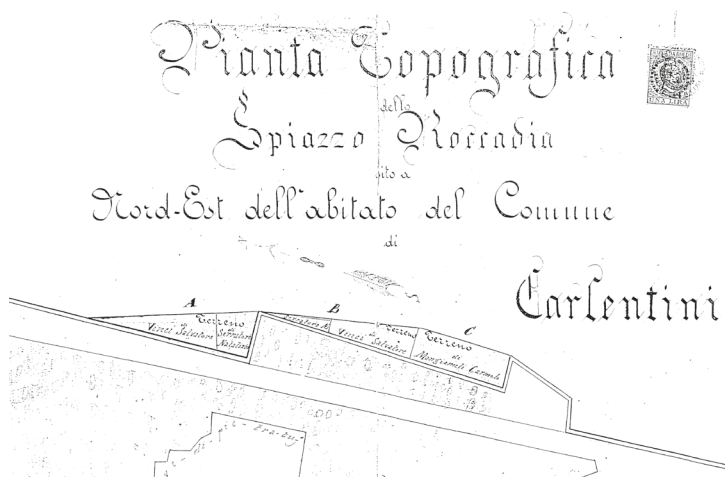 Pianta Topografica
dello
Spiazzo Roccadia
sito a
Nord-Est dell'abitato del Comune
di
Carlentini
UNA LIRA
A
B
C
Terreno
Vinci Salvatore
Terreno
di
Vinci Salvatore
Terreno
di
Mangiameli Carmelo